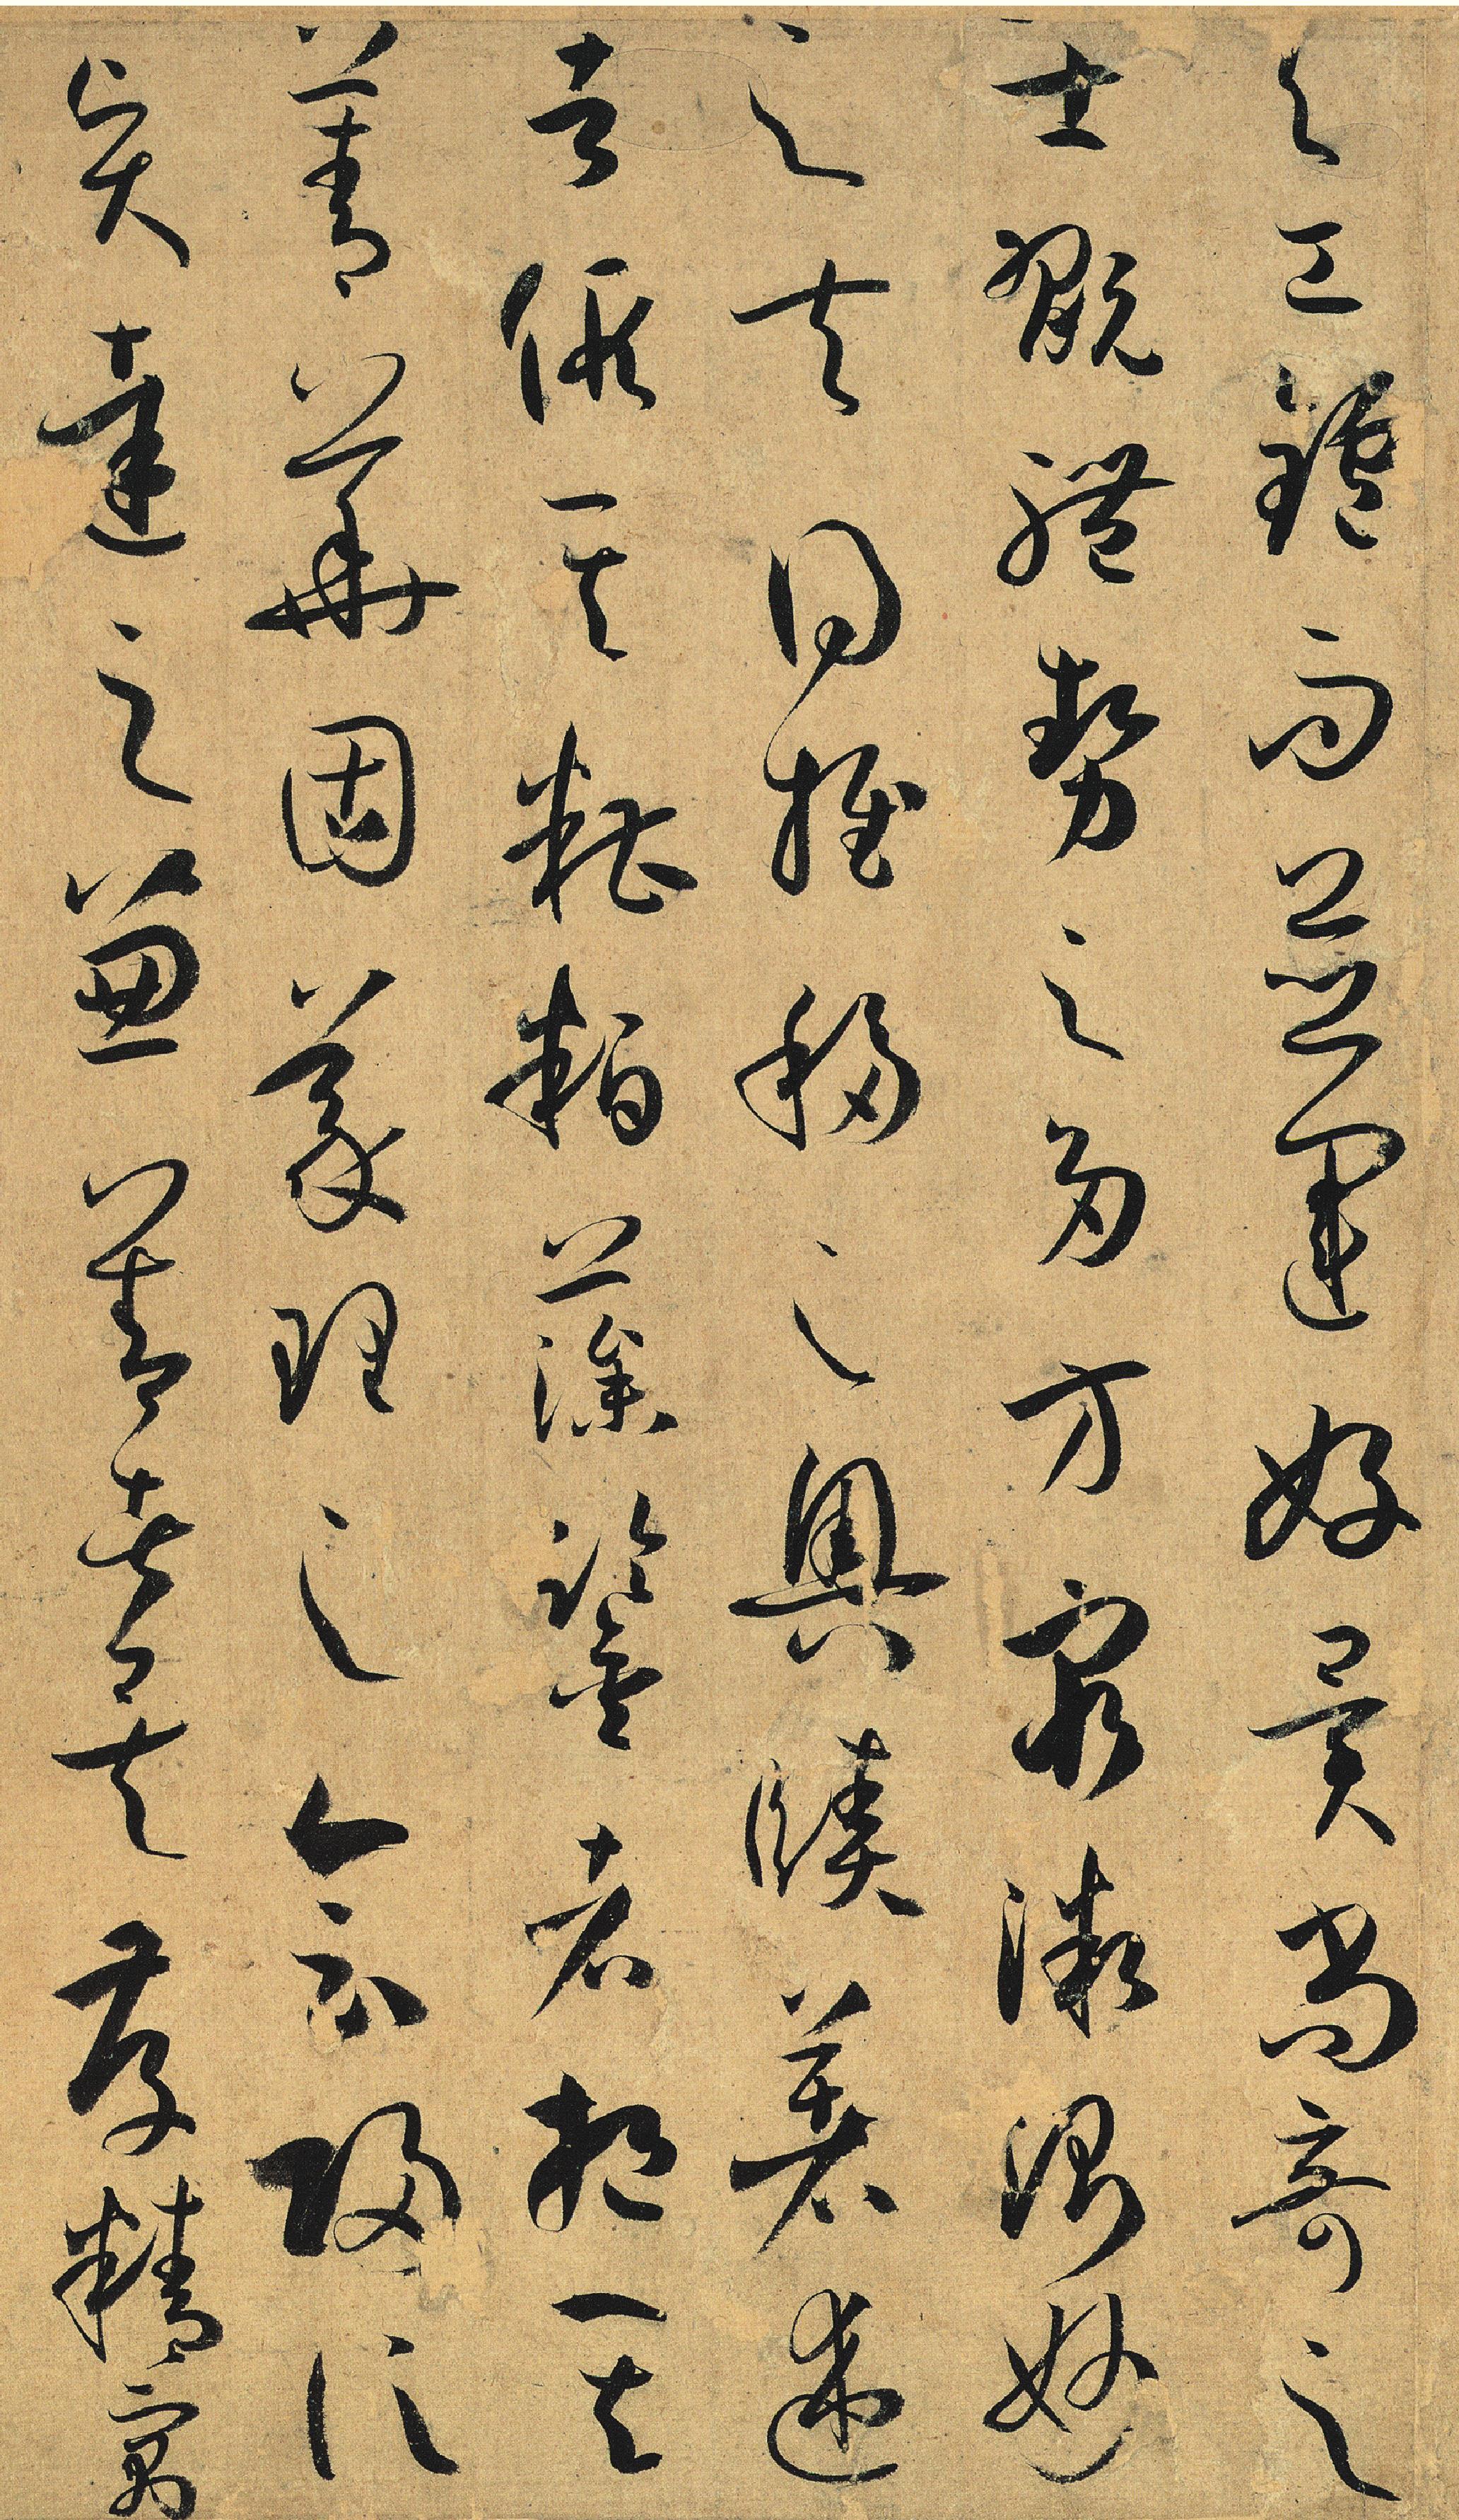 與工鑪而並運好異尚奇之
士翫體勢之多方窮微測妙
之夫得推移之奧賾著述
者假其糟粕藻鑒者挹其
菁華固義理之會歸信
賢達之兼善者矣存精寓